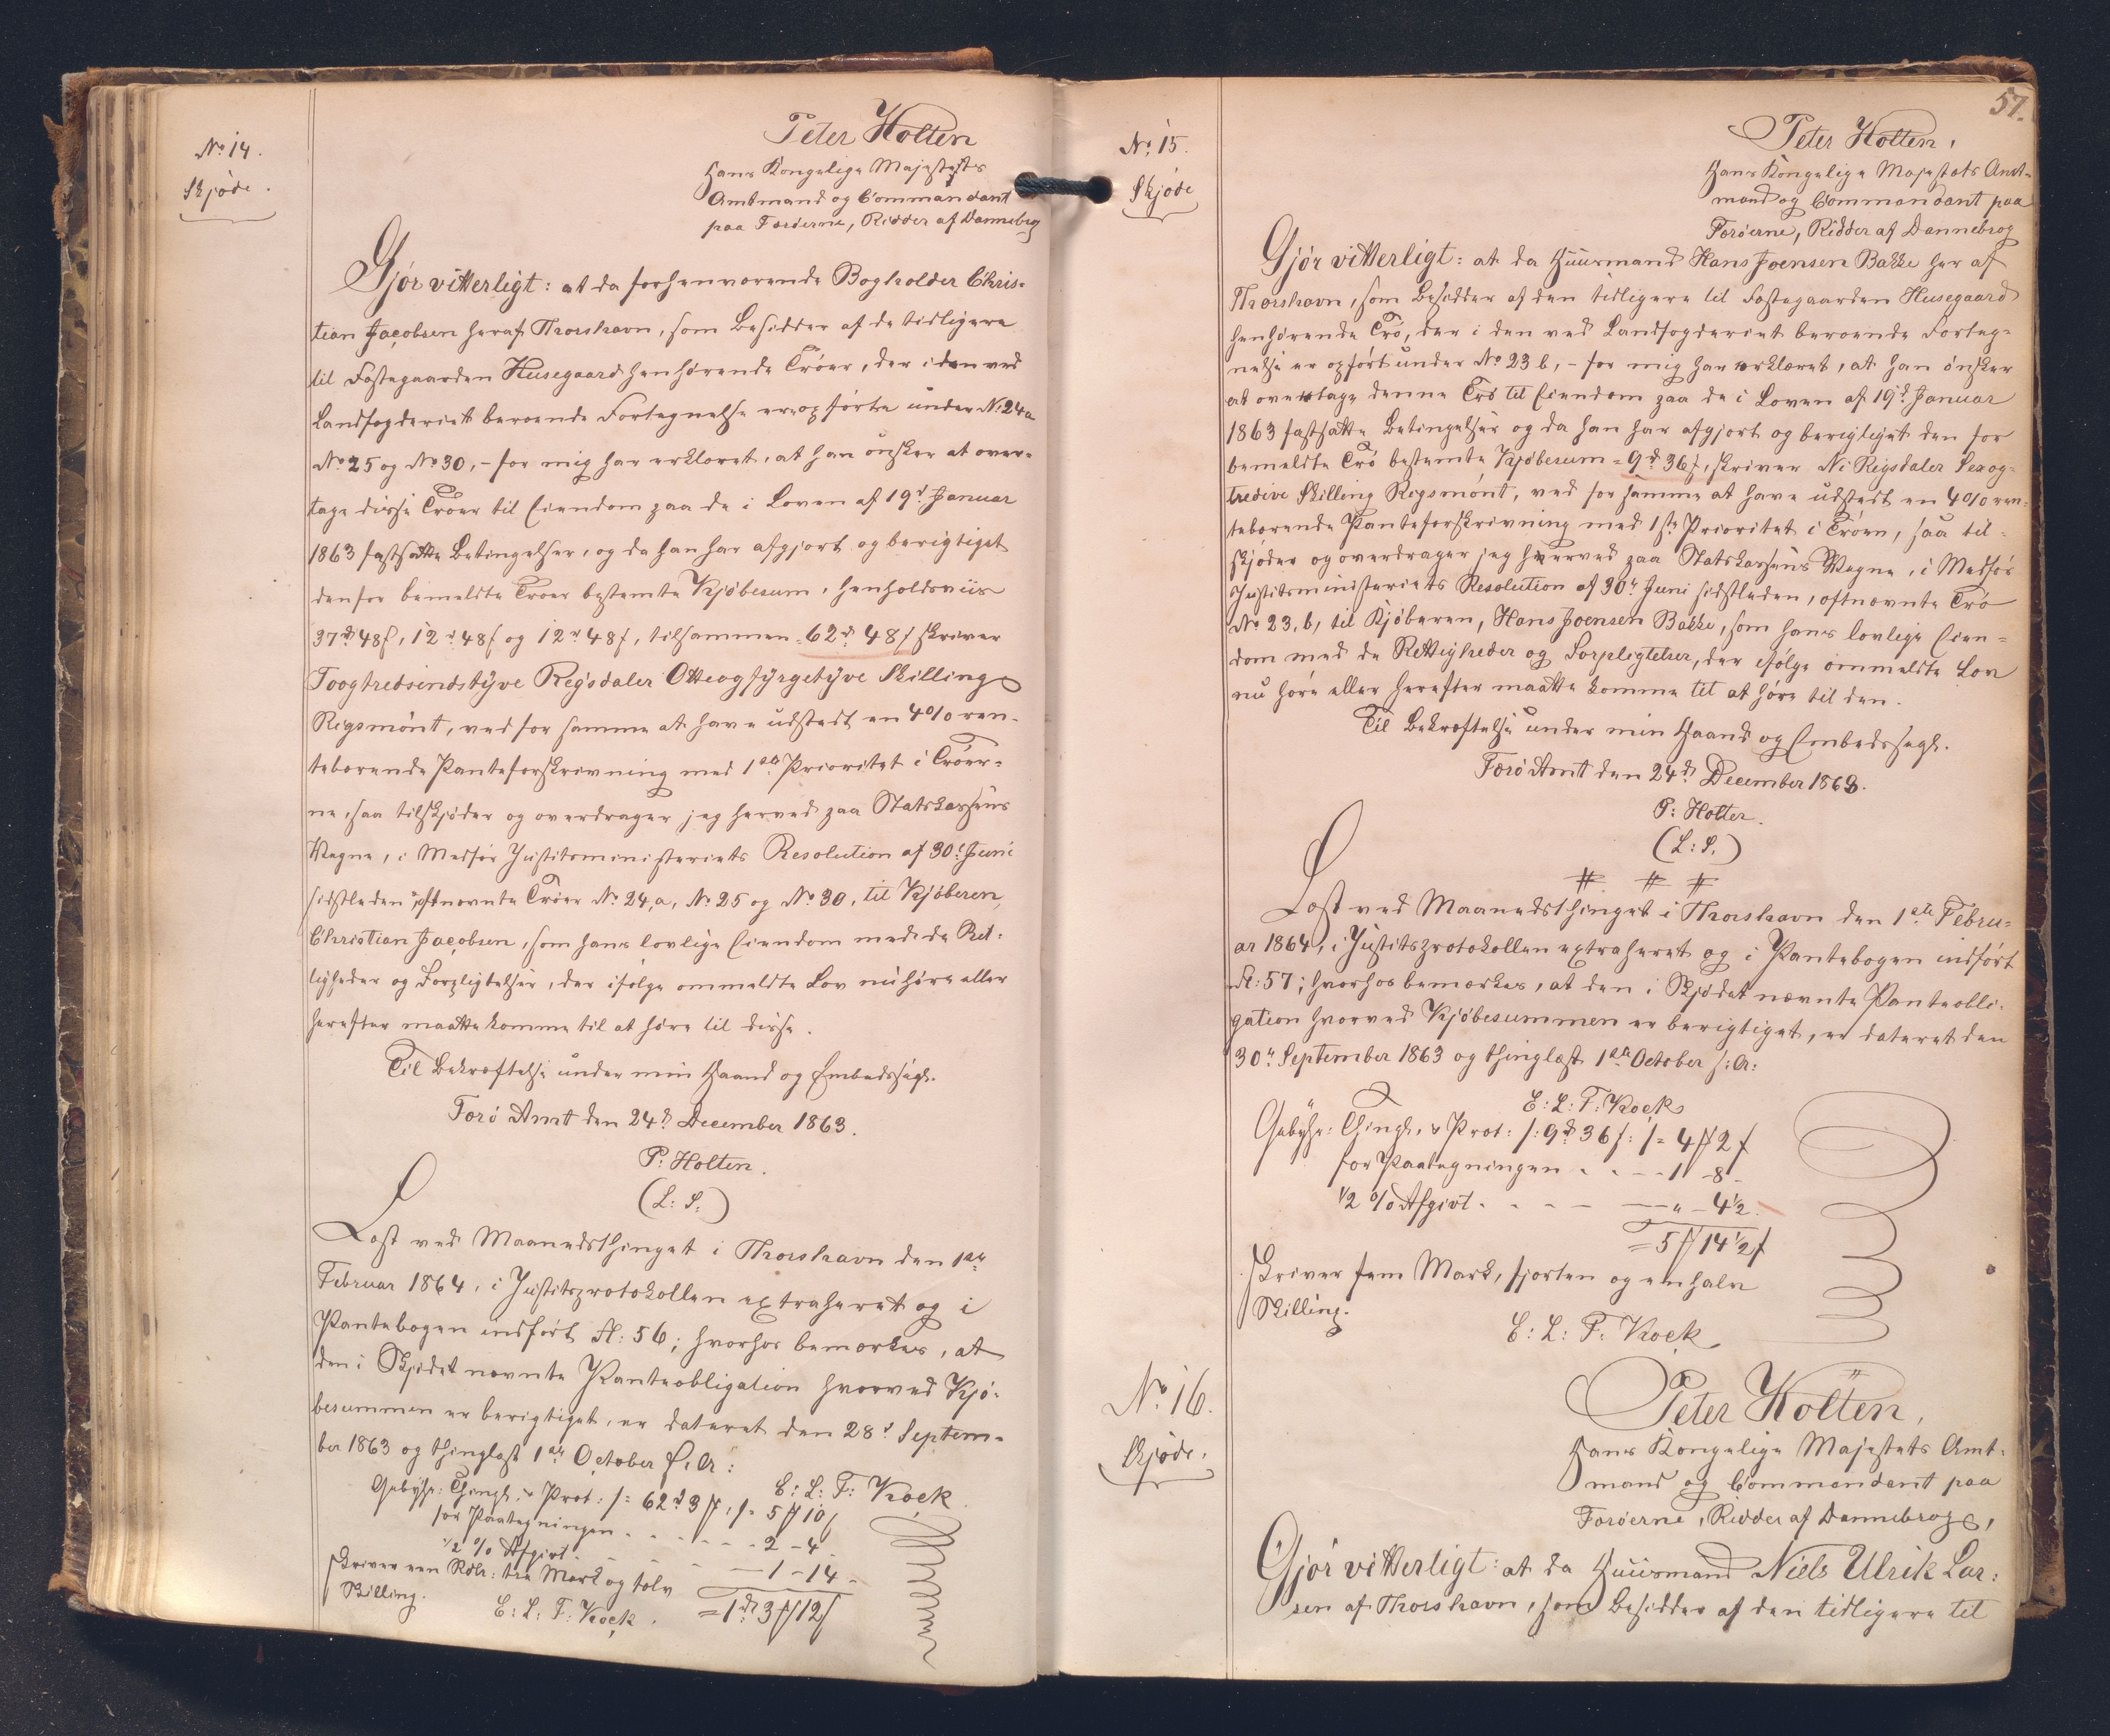 No 14.
Skjøde.
Peter Holten
Hans Kongelige Majestæts
Amtmand og Commandant
paa Færøerne, Ridder af Dannebrog
Gjør vitterligt: at da forhenværende Bogholder Chris-
tian Jacobsen heraf Thorshavn, som Besidder af de tidligere
til Fæstegaarden Husegaard henhørende Trøer, der i den ved
Landfogderiet beroende Fortegnelse ere opførte under No 24a
No 25 og No 30, - for mig har erklæret, at han ønsker at over-
tage disse Trøer til Eiendom paa de i Loven af 19d Januar
1863 fastsatte Betingelser, og da han har afgjort og berigtiget
den for bemeldte Trøer bestemte Kjøbesum, henholdsviis
37rd 48s, 12rd 48s og 12rd 48s, tilsammen = 62rd 48s skriver
Toogtredsindstyve Rigsdaler Otteogfyrgetyve Skilling
Rigsmønt, ved for samme at have udstedt en 4% ren-
tebærende Panteforskrivning med 1ste Prioritet i Trøer-
ne, saa tilskjøder og overdrager jeg herved paa Statskassens
Vegne, i Medfør Justitsministeriets Resolution af 30t Juni
sidstleden oftnævnte Trøer No 24,a, No 25 og No 30, til Kjøberen,
Christian Jacobsen, som hans lovlige Eiendom med de Ret-
tigheder og Forpligtelser, der ifølge ommeldte Lov nu høre eller
herefter maatte komme til at høre til disse.
Til Bekræftelse under min Haand og Embedssegl.
Færø Amt den 24d December 1863.
P: Holten.
(L: S.)
Læst ved Maanedsthinget i Thorshavn den 1ste
Februar 1864, i Justitsprotokollen extraheret og i
Pantebogen indført fl: 56; hvorhos bemærkes, at
den i Skjødet nævnte Panteobligation hvorved Kjø-
besummen er berigtiget, er dateret den 28d Septem-
ber 1863 og thinglæst 1ste October s: A:
E: L: F: Kock.
Gebyhr: Thingl. & Prot: /: 62rd 3 :/ = 5 10s
for Paategningen - - - - 2 - 4
1/2 % Afgivt - - - 1 - 14 -
Skriver een Rdlr: tre Mark og tolv
= 1rd 3 12s
Skilling.
E: L: F: Kock.
57.
No 15.
Skjøde
Peter Holten,
Hans Kongelige Majestæts Amt-
mand og Commandant paa
Færøerne, Ridder af Dannebrog
Gjør vitterligt: at da Huusmand Hans Joensen Bakke her af
Thorshavn, som Besidder af den tidligere til Fæstegaarden Husegaard
henhørende Trø, der i den ved Landfogderiet beroende Forteg-
nelse er opført under No 23 b, - for mig har erklæret, at han ønsker
at overtage denne Trø til Eiendom paa de i Loven af 19d Januar
1863 fastsatte Betingelser og da han har afgjort og berigtiget den for
bemeldte Trø bestemte Kjøbesum = 9rd 36s, skriver Ni Rigsdaler Sexog-
tredive Skilling Rigsmønt, ved for samme at have udstedt en 4% ren-
tebærende Panteforskrivning med 1ste Prioritet i Trøen, saa til-
skjøder og overdrager jeg herved paa Statskassens Vegne, i Medfør
Justitsministeriets Resolution af 30te Juni sidstleden, oftnævnte Trø
No 23, b, til Kjøberen, Hans Joensen Bakke, som hans lovlige Eien-
dom med de Rettigheder og Forpligtelser, der ifølge ommeldte Lov
nu høre eller herefter maatte komme til at høre til den.
Til Bekræftelse under min Haand og Embedssegl.
Færø Amt den 24d December 1863.
P: Holten.
(L: S.)
Læst ved Maanedsthinget i Thorshavn den 1ste Febru-
ar 1864, i Justitsprotokollen extraheret og i Pantebogen indført
fl: 57; hvorhos bemærkes, at den i Skjødet nævnte Panteobli-
gation hvorved Kjøbesummen er berigtiget, er dateret den
30te September 1863 og thinglæst 1ste October s: A:
E: L: F: Kock
Gebyhr: Thingl. & Prot: /: 9rd 36s :/ = 4 2s
for Paategningen - - - 1 - 8 -
1/2 % Afgivt - - - - " - 4 1/2
= 5 14 1/2 s
Skriver fem Mark, fjorten og en halv
Skilling.
E: L: F: Kock
No 16.
Skjøde.
Peter Holten,
Hans Kongelige Majestæts Amt-
mand og Commandant paa
Færøerne, Ridder af Dannebrog,
Gjør vitterligt: at da Huusmand Niels Ulrik Lar-
sen af Thorshavn, som Besidder af den tidligere til